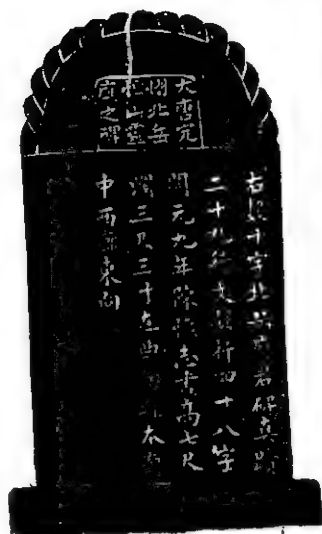 大唐定
州北岳
恒山靈
廟之碑
右題十字北嶽府君碑真
二十九行文行四十八字
開元九年陳懷志書高七尺
濶三尺三寸在曲陽本廟
中西廊東向